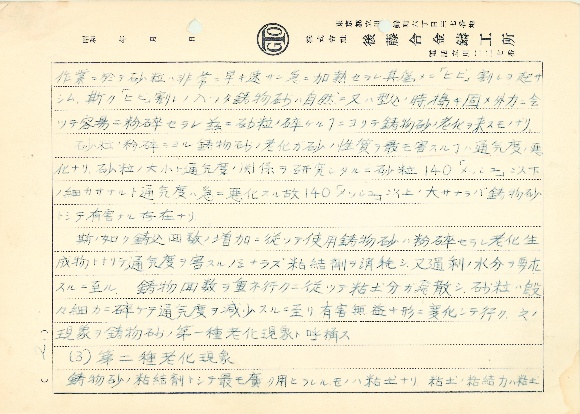 東京都立川市錦町六丁目二七番地
株式会社 後藤合金鑄工所
昭和 年 月 日
作業ニ於テ砂粒ハ非常ニ早キ速サニ急ニ加熱セラレ其為メニ「ヒビ」割レヲ起サ
シム、斯ク「ヒビ」割レノ入ツタ鋳物砂ハ自然ニ又ハ型込時搗キ固メ外力ニ会
ツテ容易ニ粉砕セラレ茲ニ砂粒ノ砕ケルコトニヨリテ鋳物砂ノ老化ヲ来スモノナリ、
砂粒ノ粉砕ニヨル鋳物砂ノ老化ガ砂ノ性質ヲ最モ害スルコトハ通気度ノ悪
化ナリ、砂粒ノ大小ト通気度ノ関係ヲ研究シタルニ砂粒140「メッシュ」以下
ノ細カサナルト通気度ハ急ニ悪化スル故140「メッシュ」以上ノ大サナラバ鋳物砂
トシテ有害ナル存在ナリ
斯ノ如ク鋳込回数ノ増加ニ従ツテ使用鋳物砂ハ粉砕セラレ老化生
成物トナリテ通気度ヲ害スルノミナラズ粘結剤ヲ消耗シ、又過剰ノ水分ヲ要求
スルニ至ル、 鋳物回数ヲ重ネ行クニ従ツテ粘土分ガ飛散シ、砂粒ハ段
々細カニ砕ケテ通気度ヲ減少スルニ至リ有害無益ナ形ニ変化シテ行ク、之ノ
現象ヲ鋳物砂ノ第一種老化現象ト呼稱ス
(3) 第二種老化現象
鋳物砂ノ粘結剤トシテ最モ廣ク用ヒラレルモノハ粘土ナリ 粘土ノ粘結力ハ粘土